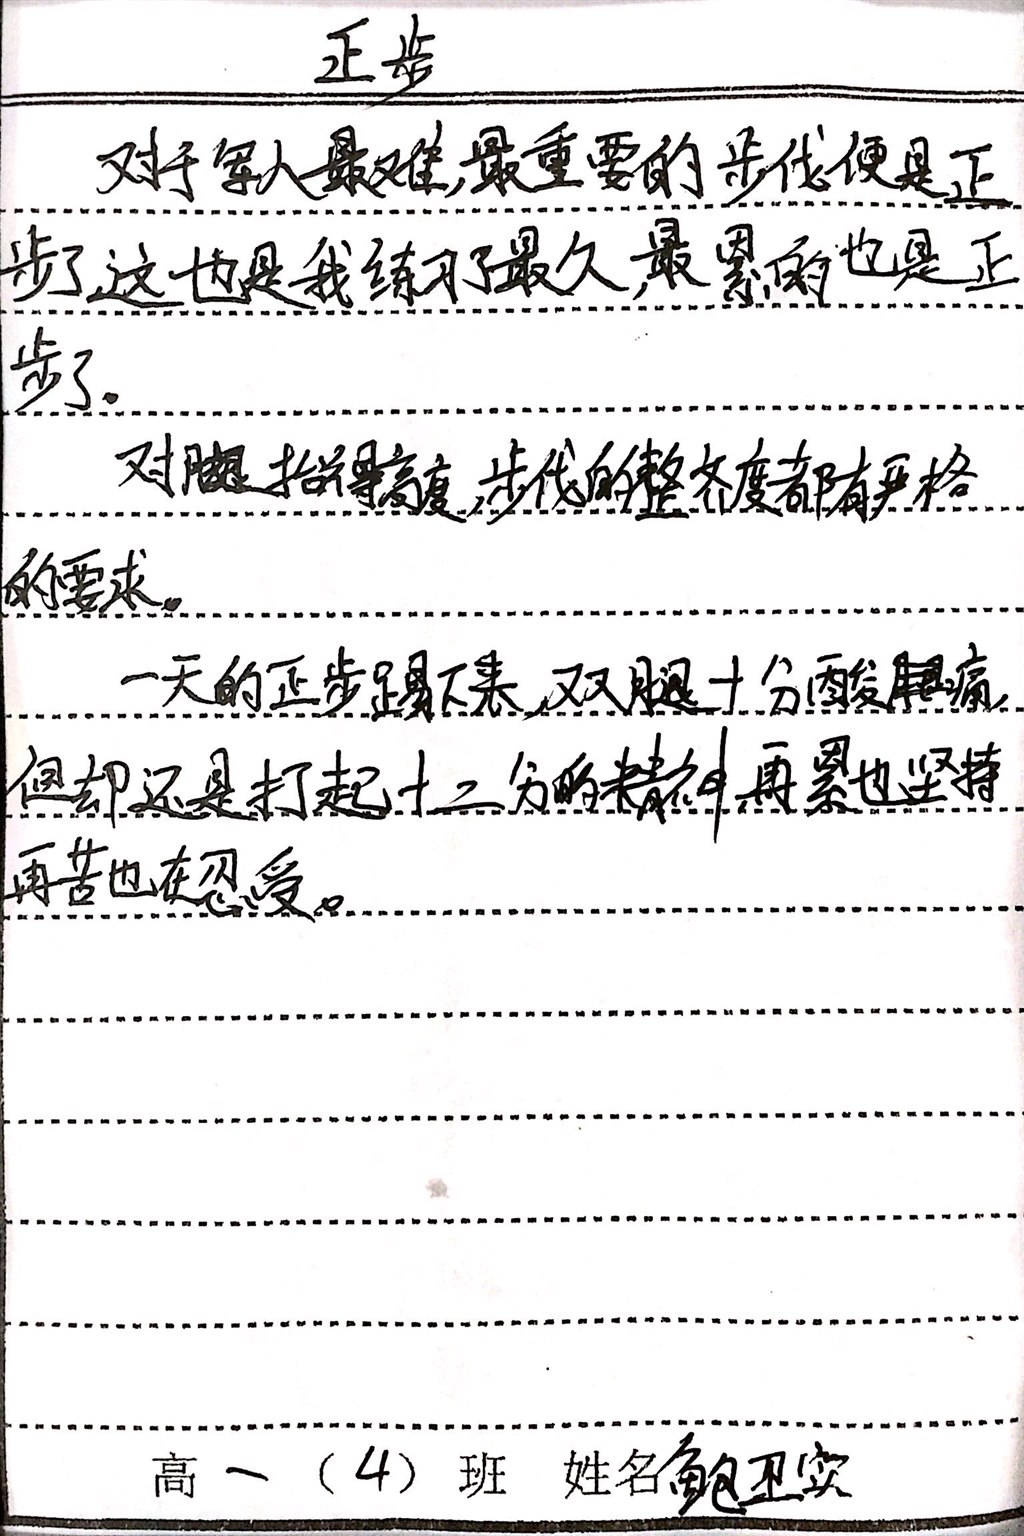 正步
对于军人最难,最重要的步伐便是正
步了这也是我练习了最久,最累的也是正
步了。
对腿抬得高度,步伐的整齐度都有严格
的要求。
一天的正步踢下来,双腿十分酸痛,
但却还是打起十二分的精神,再累也坚持
再苦也在忍受。
高一(4)班 姓名鲍卫实